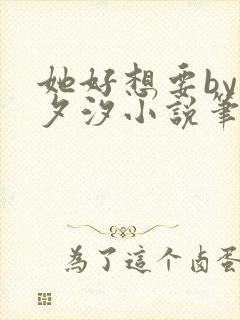 她好想要by
夕汐小說筆
為了這个卤蛋